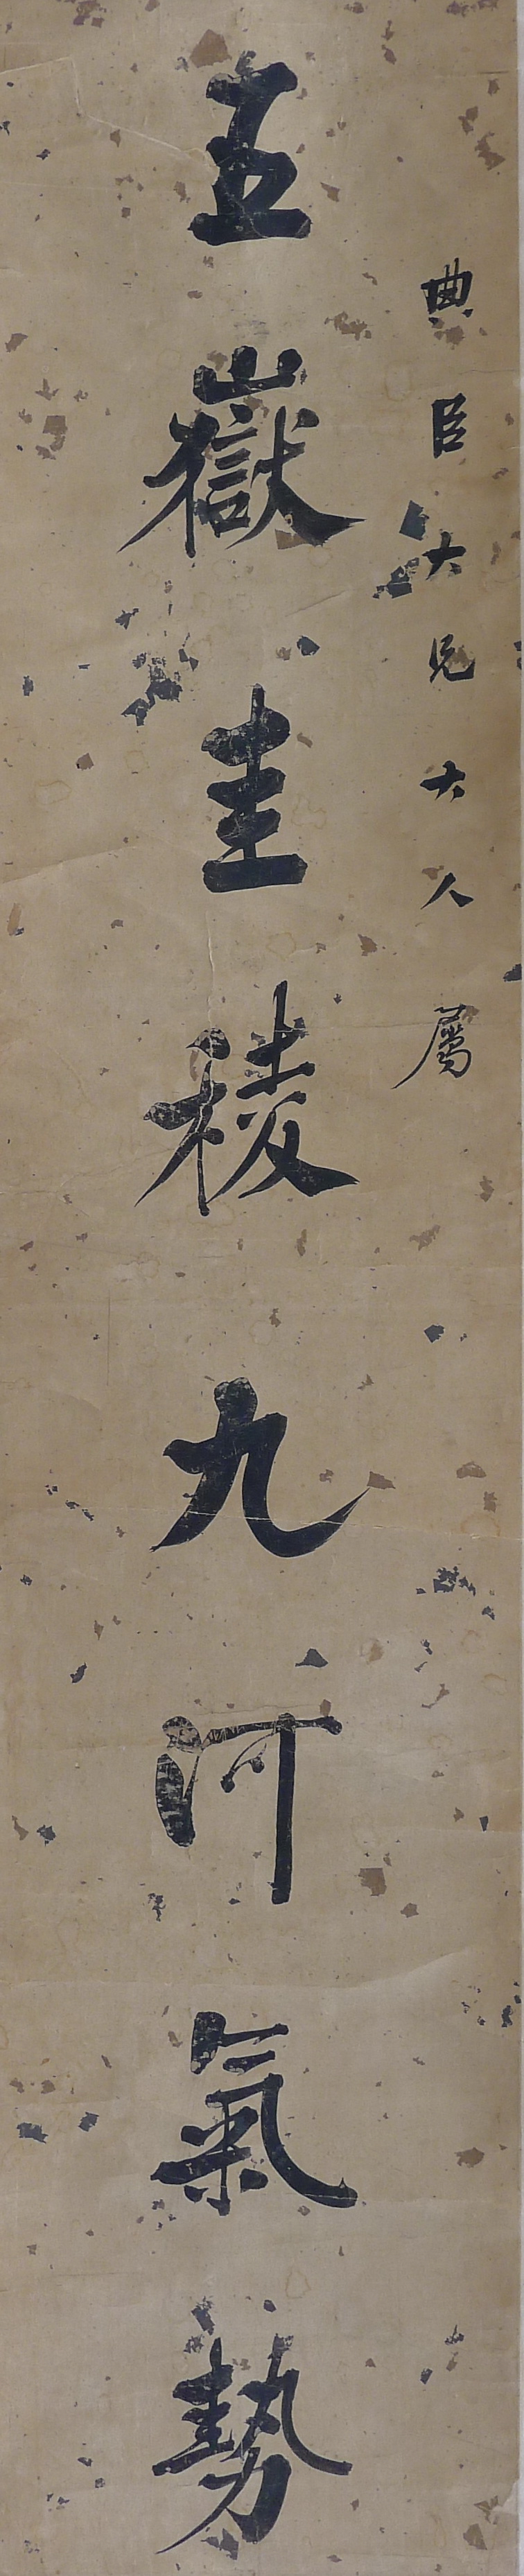 典臣大兄大人屬
五嶽圭棱九河氣勢